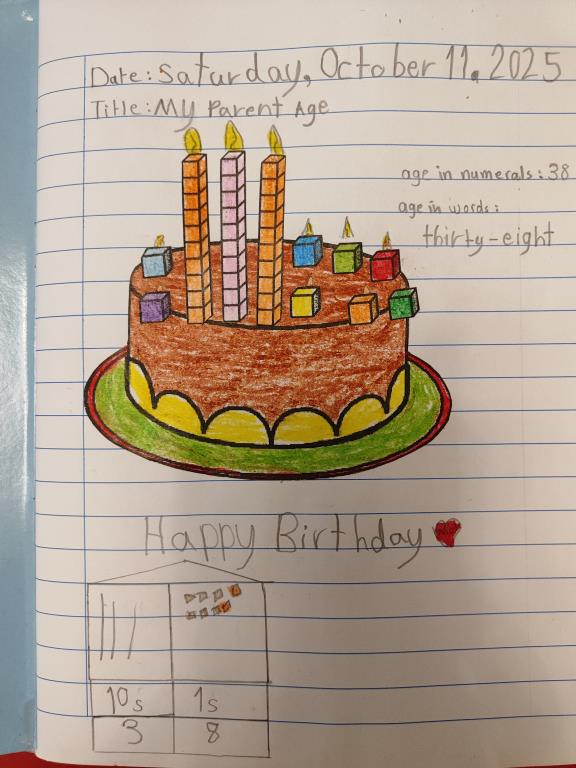 Date: Saturday, October 11. 2025
Title: My Parent Age
age in numerals: 38
age in words:
thirty-eight
Happy Birthday
10s 1s
3 8